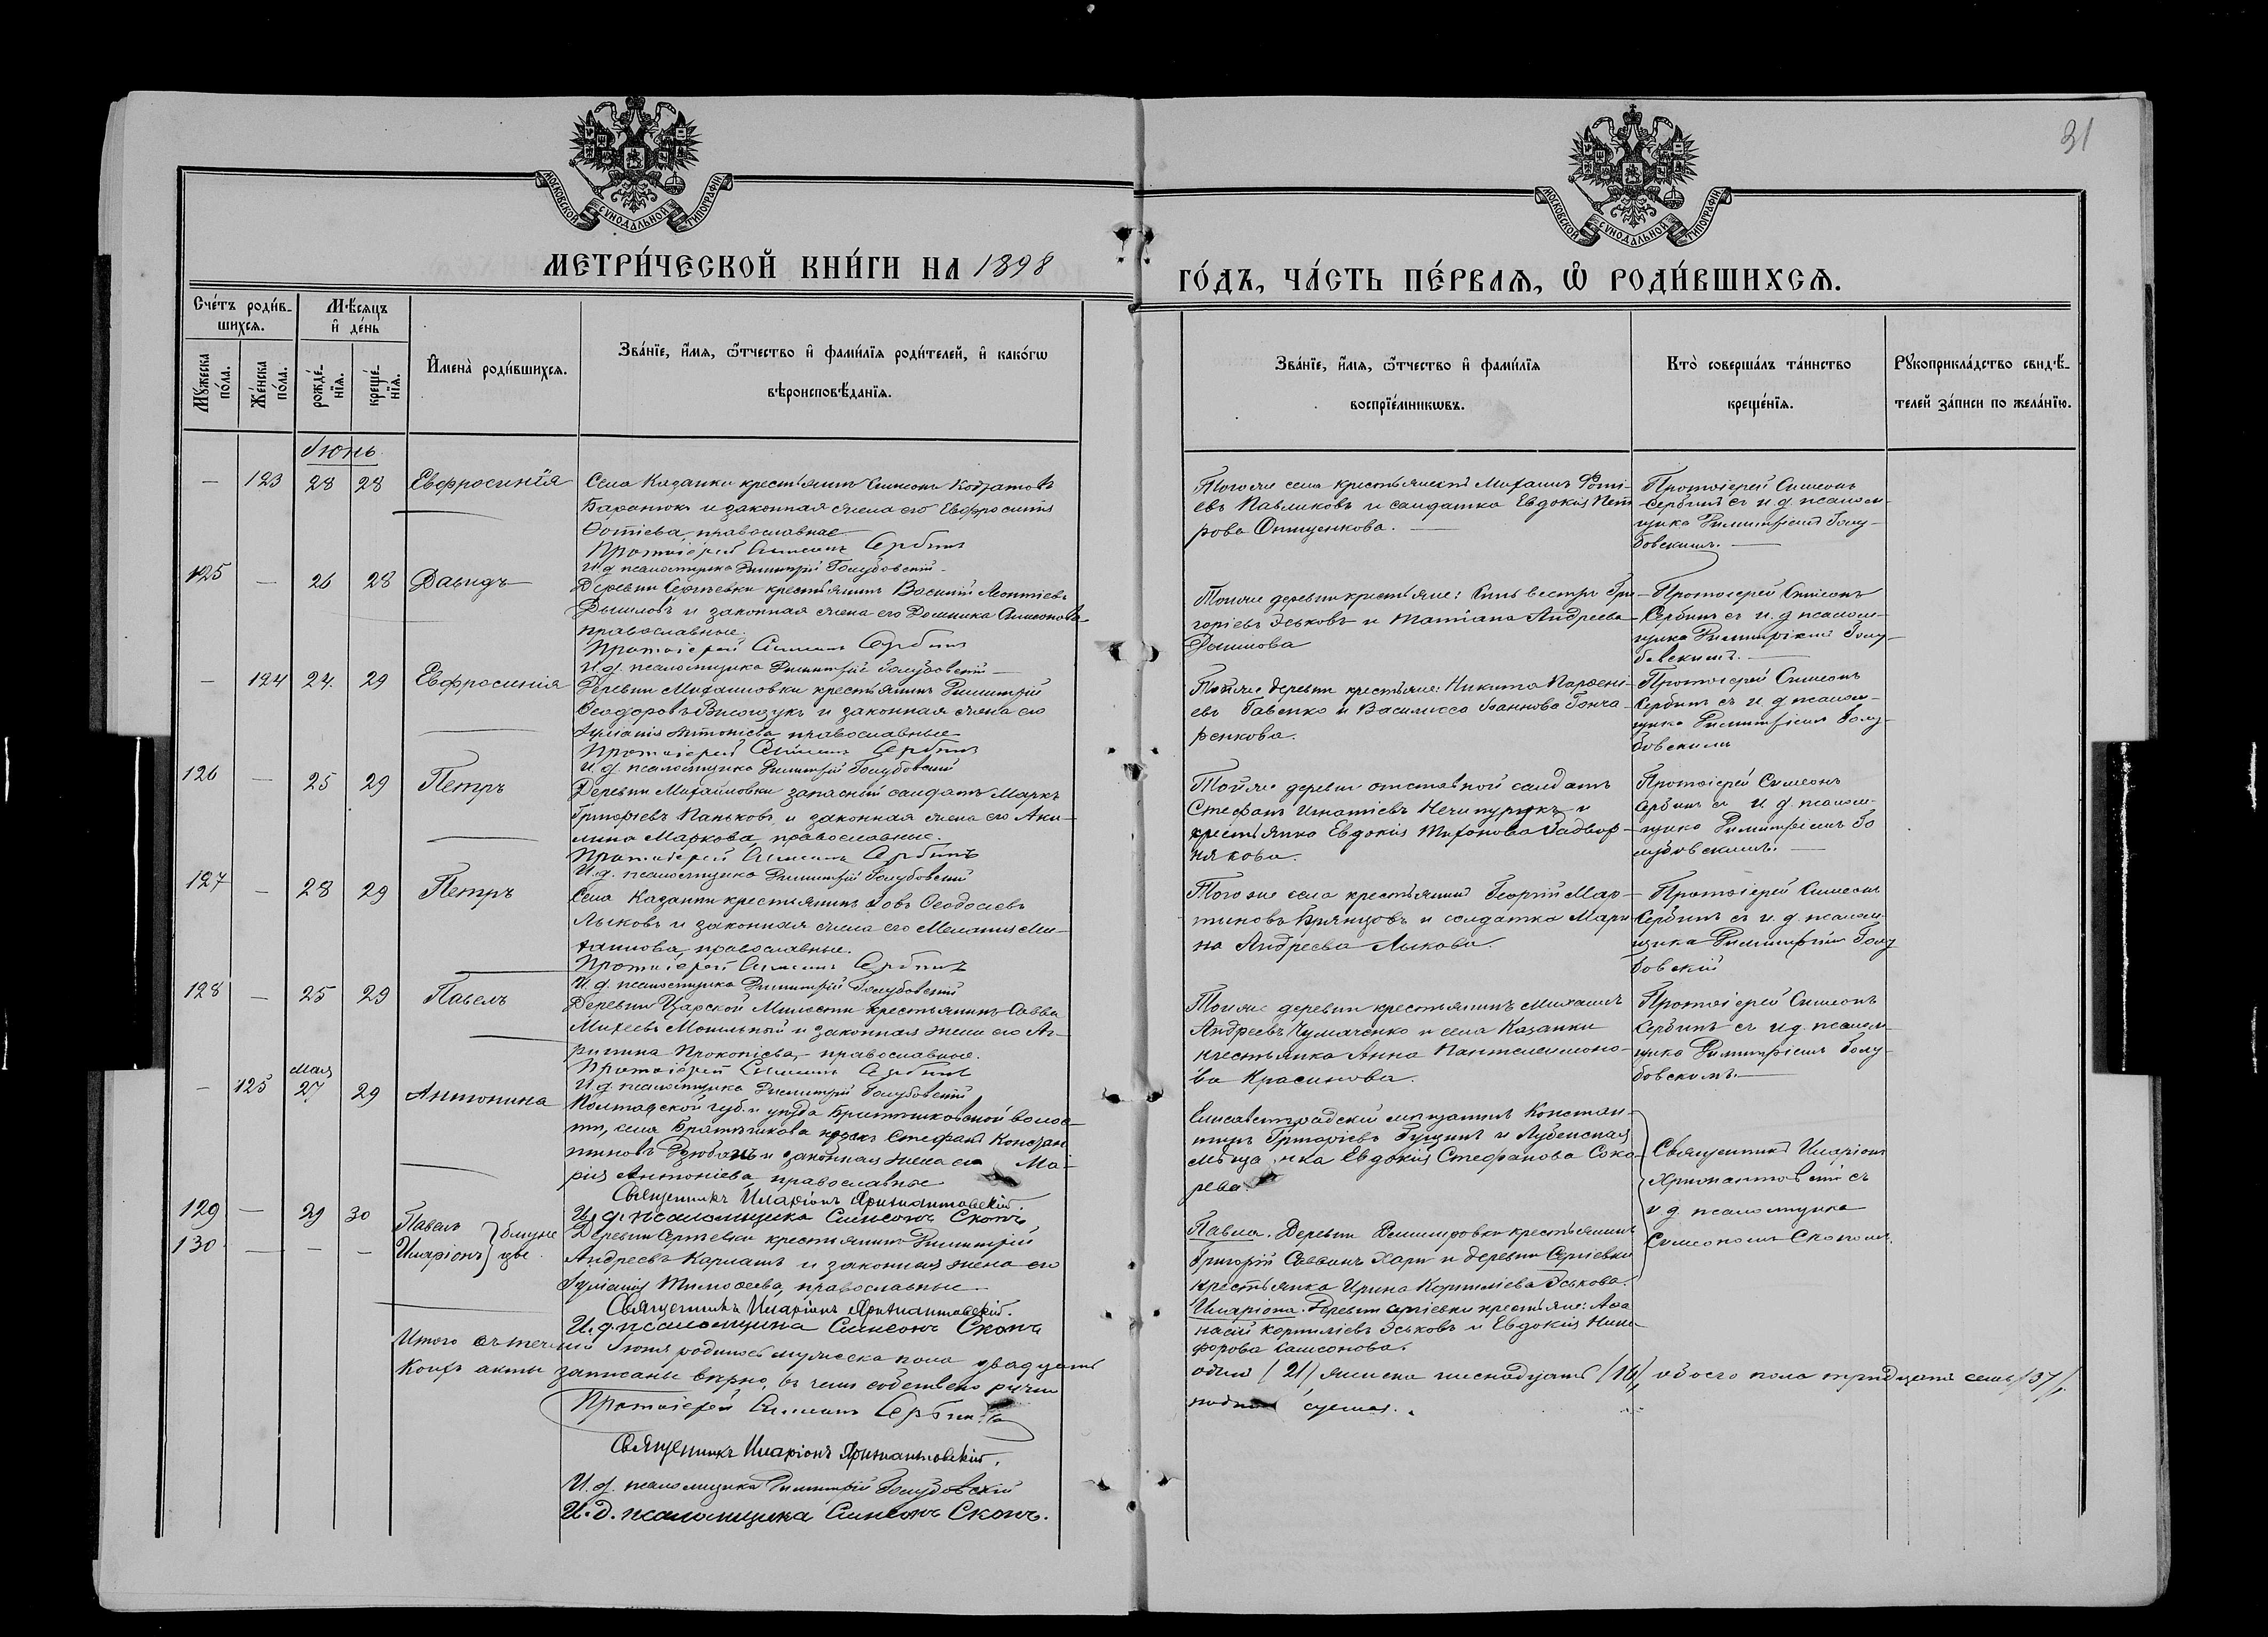 31
МОСКОВСКОЙ СУНОДАЛЬНОЙ ТИПОГРАФІИ
МОСКОВСКОЙ СУНОДАЛЬНОЙ ТИПОГРАФІИ
МЕТРИ́ЧЕСКОЙ КНИ́ГИ НА 1898
ГО́ДЪ, ЧА́СТЬ ПЕ́РВАѦ, Ѡ҆ РОДИ́ВШИХСѦ.
Сче́тъ роди́в-
шихсѧ.
Мꙋ́жеска по́ла.
Же́нска по́ла.
Мѣ́сѧцъ и҆ де́нь
рожде́-нїѧ.
креще́-нїѧ.
И҆мена̀ роди́вшихсѧ.
Зва́нїе, и҆́мѧ, ѻ҆́тчество и҆ фами́лїѧ роди́телей, и҆ како́гѡ
вѣроисповѣ́данїѧ.
Зва́нїе, и҆́мѧ, ѻ҆́тчество и҆ фами́лїѧ
воспрїе́мникѡвъ.
Кто̀ соверша́лъ та́инство
креще́нїѧ.
Рꙋкоприкла́дство свидѣ́-
телей за́писи по жела́нїю.
Іюнь
— 123 28 28 Евфросинія
Села Казанки крестьянинъ Симеонъ Кондратовъ
Баранюкъ и законная жена его Евфросинія
Фотіева, православные
Протоіерей Симеонъ Сербинъ
И. д. псаломщика Димитрій Голубовскій
Того же села крестьянинъ Михаилъ Фоті-
евъ Павликовъ и солдатка Евдокія Пет-
рова Онищенкова.
Протоіерей Симеонъ
Сербинъ съ и. д. псалом-
щика Димитріемъ Голу-
бовскимъ.
125 — 26 28 Давидъ
Деревни Сергѣевки крестьянинъ Василій Леонтіевъ
Дышловъ и законная жена его Домника Симеонова
православные.
Протоіерей Симеонъ Сербинъ
И. д. псаломщика Димитрій Голубовскій
Той же деревни крестьяне: Сильвестръ Гри-
горіевъ Эськовъ и Татіана Андреева
Дышлова
Протоіерей Симеонъ
Сербинъ съ и. д. псалом-
щика Димитріемъ Голу-
бовскимъ.
— 124 24 29 Евфросинія
Деревни Михайловки крестьянинъ Димитрій
Ѳеодоровъ Висоцукъ и законная жена его
Іуліанія Антоніева православные
Протоіерей Симеонъ Сербинъ
И. д. псаломщика Димитрій Голубовскій
Той же деревни крестьяне: Никита Парѳені-
евъ Бабенко и Василисса Іоаннова Гонча-
ренкова.
Протоіерей Симеонъ
Сербинъ съ и. д. псалом-
щика Димитріемъ Голу-
бовскимъ
126 — 25 29 Петръ
Деревни Михайловки запасный солдатъ Маркъ
Григоріевъ Паньковъ и законная жена его Аки-
лина Маркова, православные.
Протоіерей Симеонъ Сербинъ
И. д. псаломщика Димитрій Голубовскій
Той же деревни отставной солдатъ
Стефанъ Игнатіевъ Нечипурукъ и
крестьянка Евдокія Тихонова Задвор-
някова.
Протоіерей Симеонъ
Сербинъ съ и. д. псалом-
щика Димитріемъ Го
лубовскимъ.
127 — 28 29 Петръ
Села Казанки крестьянинъ Іовъ Ѳеодосіевъ
Лыковъ и законная жена его Меланія Ми-
хаилова, православные.
Протоіерей Симеонъ Сербинъ
И. д. псаломщика Димитрій Голубовскій
Того же села крестьянинъ Георгій Мар-
тиновъ Брянцовъ и солдатка Мари-
на Андреева Лыкова
Протоіерей Симеонъ
Сербинъ съ и. д. псалом-
щика Димитрій Голу
бовскій
128 — 25 29 Павелъ
Деревни Царской Милости крестьянинъ Савва
Михеевъ Могильный и законная жена его Аг-
рипина Прокопіева, православные.
Протоіерей Симеонъ Сербинъ
И. д. псаломщика Димитрій Голубовскій
Той же деревни крестьянинъ Михаилъ
Андреевъ Чумаченко и села Казанки
крестьянка Анна Пантелеимоно-
ва Красикова.
Протоіерей Симеонъ
Сербинъ съ и. д. псалом-
щика Димитріемъ Голу-
бовскимъ.
Мая
— 125 27 29 Антонина
Полтавской губ. и уѣзда Братешковской волос-
ти, села Братешкова козакъ Стефанъ Констан
тиновъ Дзюбанъ и законная жена его Ма-
рія Антоніева, православные
Священникъ Иларіонъ
И. д. псаломщика Симеонъ Скопъ
Елисаветградскій мѣщанинъ Констан-
тинъ Григоріевъ Гущинъ и Лубенская
мѣщанка Евдокія Стефанова Соко-
рева.
Священникъ Иларіонъ
съ
и д. псаломщика
Симеономъ Скопомъ.
129 — 29 30 Павелъ
130 — — — Иларіонъ } близне
цы
Деревни Сергѣевки крестьянинъ Димитрій
Андреевъ Карлашъ и законная жена его
Іуліанія Тимоѳеева, православные
Священникъ Иларіонъ
И. д. псаломщика Симеонъ Скопъ
Павла. Деревни крестьянинъ
Григорій Саввинъ Хари и деревни Сергіевки
крестьянка Ирина Корниліева Эськова.
Иларіона. Деревни Сергіевки крестьяне: Аѳа
насій Корниліевъ Эськовъ и Евдокія Ники-
форова Самсонова.
Итого въ теченіи Іюня родилось мужеска пола двадцать
одинъ (21) женска шеснадцать (16), обоего пола тридцать семь (37),
Коихъ акты записаны вѣрно, въ чемъ собственно ручно
подписуемся.
Протоіерей Симеонъ Сербинъ
Священникъ Иларіонъ
И. д. псаломщика Димитрій Голубовскій
И. д. псаломщика Симеонъ Скопъ.